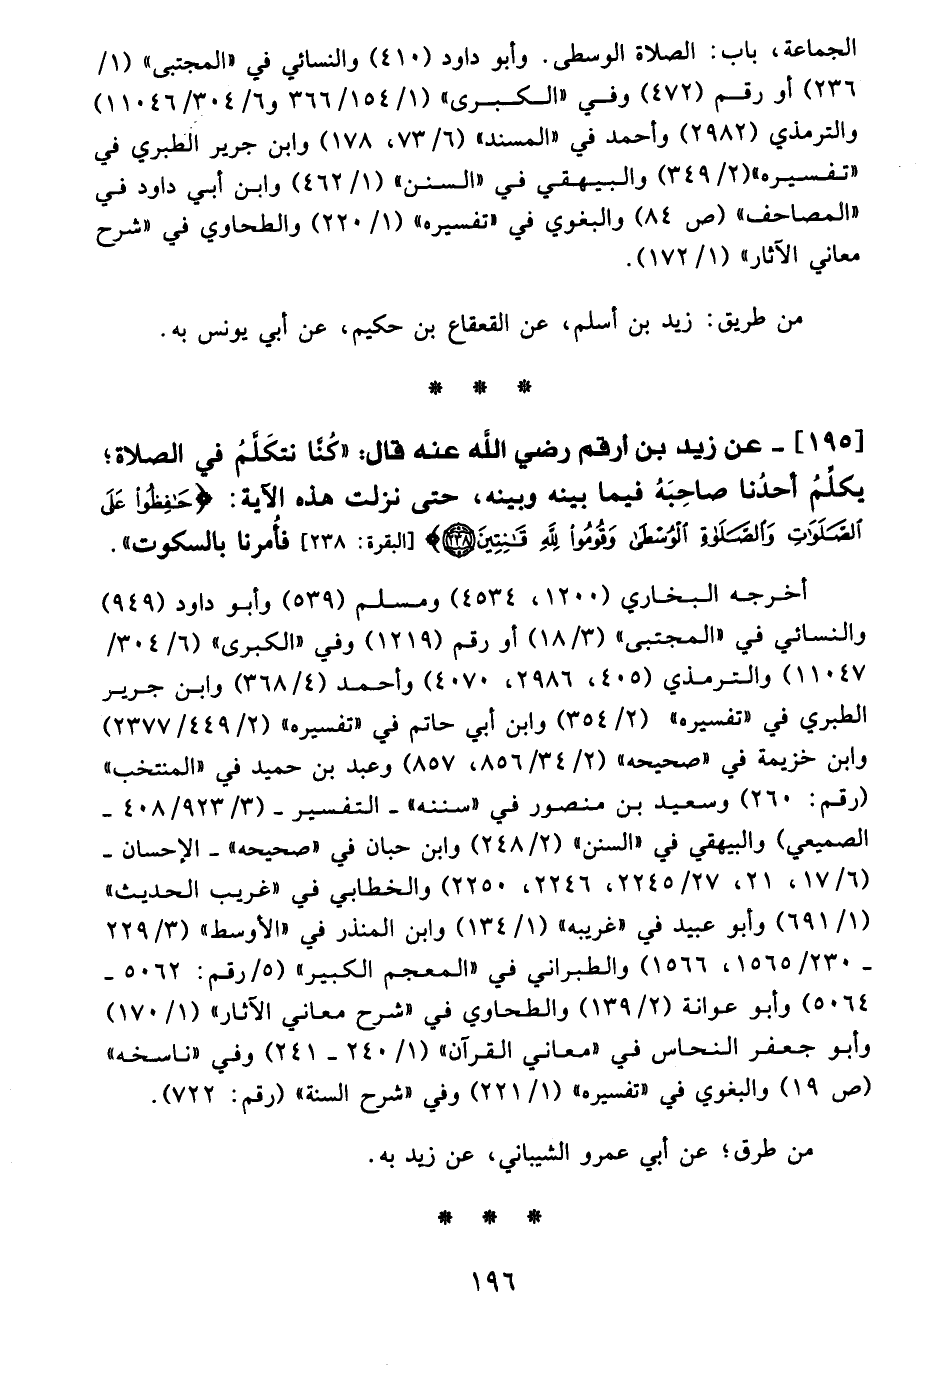 الجماعة، باب: الصلاة الوسطى. وأبو داود (٤١٠) والنسائي في «المجتبى» (١/
٢٣٦) أو رقم (٤٧٢) وفي «الكبرى» (١/ ٣٦٦/١٥٤ و٦/ ١١٠٤٦/٣٠٤)
والترمذي (٢٩٨٢) وأحمد في «المسند» (٦/ ٧٣، ١٧٨) وابن جرير الطبري في
«تفسيره»(٢/ ٣٤٩) والبيهقي في «السنن» (١/ ٤٦٢) وابن أبي داود في
«المصاحف» (ص ٨٤) والبغوي في «تفسيره» (١/ ٢٢٠) والطحاوي في «شرح
معاني الآثار» (١/ ١٧٢).
من طريق: زيد بن أسلم، عن القعقاع بن حكيم، عن أبي يونس به.
* * *
[١٩٥] ـ عن زيد بن أرقم رضي الله عنه قال: «كُنَّا نتكَلَّمُ في الصلاة؛
يكلِّمُ أحدُنا صاحِبَهُ فيما بينه وبينه، حتى نزلت هذه الآية: ﴿حَٰفِظُوا۟ عَلَى
ٱلصَّلَوَٰتِ وَٱلصَّلَوٰةِ ٱلْوُسْطَىٰ وَقُومُوا۟ لِلَّهِ قَٰنِتِينَ ٢٣٨﴾ [البقرة: ٢٣٨] فأُمرنا بالسكوت».
أخرجه البخاري (١٢٠٠، ٤٥٣٤) ومسلم (٥٣٩) وأبو داود (٩٤٩)
والنسائي في «المجتبى» (١٨/٣) أو رقم (١٢١٩) وفي «الكبرى» (٦/ ٣٠٤/
١١٠٤٧) والترمذي (٤٠٥، ٢٩٨٦، ٤٠٧٠) وأحمد (٣٦٨/٤) وابن جرير
الطبري في «تفسيره» (٢/ ٣٥٤) وابن أبي حاتم في «تفسيره» (٢/ ٢٣٧٧/٤٤٩)
وابن خزيمة في «صحيحه» (٢/ ٨٥٦/٣٤، ٨٥٧) وعبد بن حميد في «المنتخب»
(رقم: ٢٦٠) وسعيد بن منصور في «سننه» ـ التفسير ـ (٣/ ٤٠٨/٩٢٣ ـ
الصميعي) والبيهقي في «السنن» (٢/ ٢٤٨) وابن حبان في «صحيحه» ـ الإحسان ـ
(٦/ ١٧، ٢١، ٢٢٤٥/٢٧، ٢٢٤٦، ٢٢٥٠) والخطابي في «غريب الحديث»
(١/ ٦٩١) وأبو عبيد في «غريبه» (١/ ١٣٤) وابن المنذر في «الأوسط» (٣/ ٢٢٩
ـ ١٥٦٥/٢٣٠، ١٥٦٦) والطبراني في «المعجم الكبير» (٥/ رقم: ٥٠٦٢ ـ
٥٠٦٤) وأبو عوانة (٢/ ١٣٩) والطحاوي في «شرح معاني الآثار» (١/ ١٧٠)
وأبو جعفر النحاس في «معاني القرآن» (١/ ٢٤٠ ـ ٢٤١) وفي «ناسخه»
(ص ١٩) والبغوي في «تفسيره» (١/ ٢٢١) وفي «شرح السنة» (رقم: ٧٢٢).
من طرق؛ عن أبي عمرو الشيباني، عن زيد به.
* * *
١٩٦